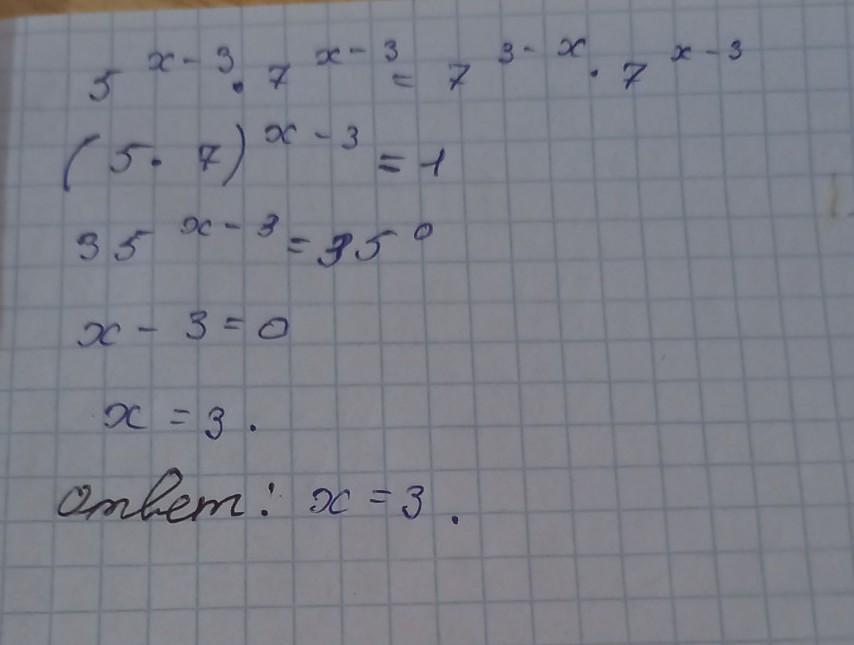 5^{x-3} · 7^{x-3} = 7^{3-x} · 7^{x-3}
(5 · 7)^{x-3} = 1
35^{x-3} = 35^0
x - 3 = 0
x = 3.
Ответ: x = 3.